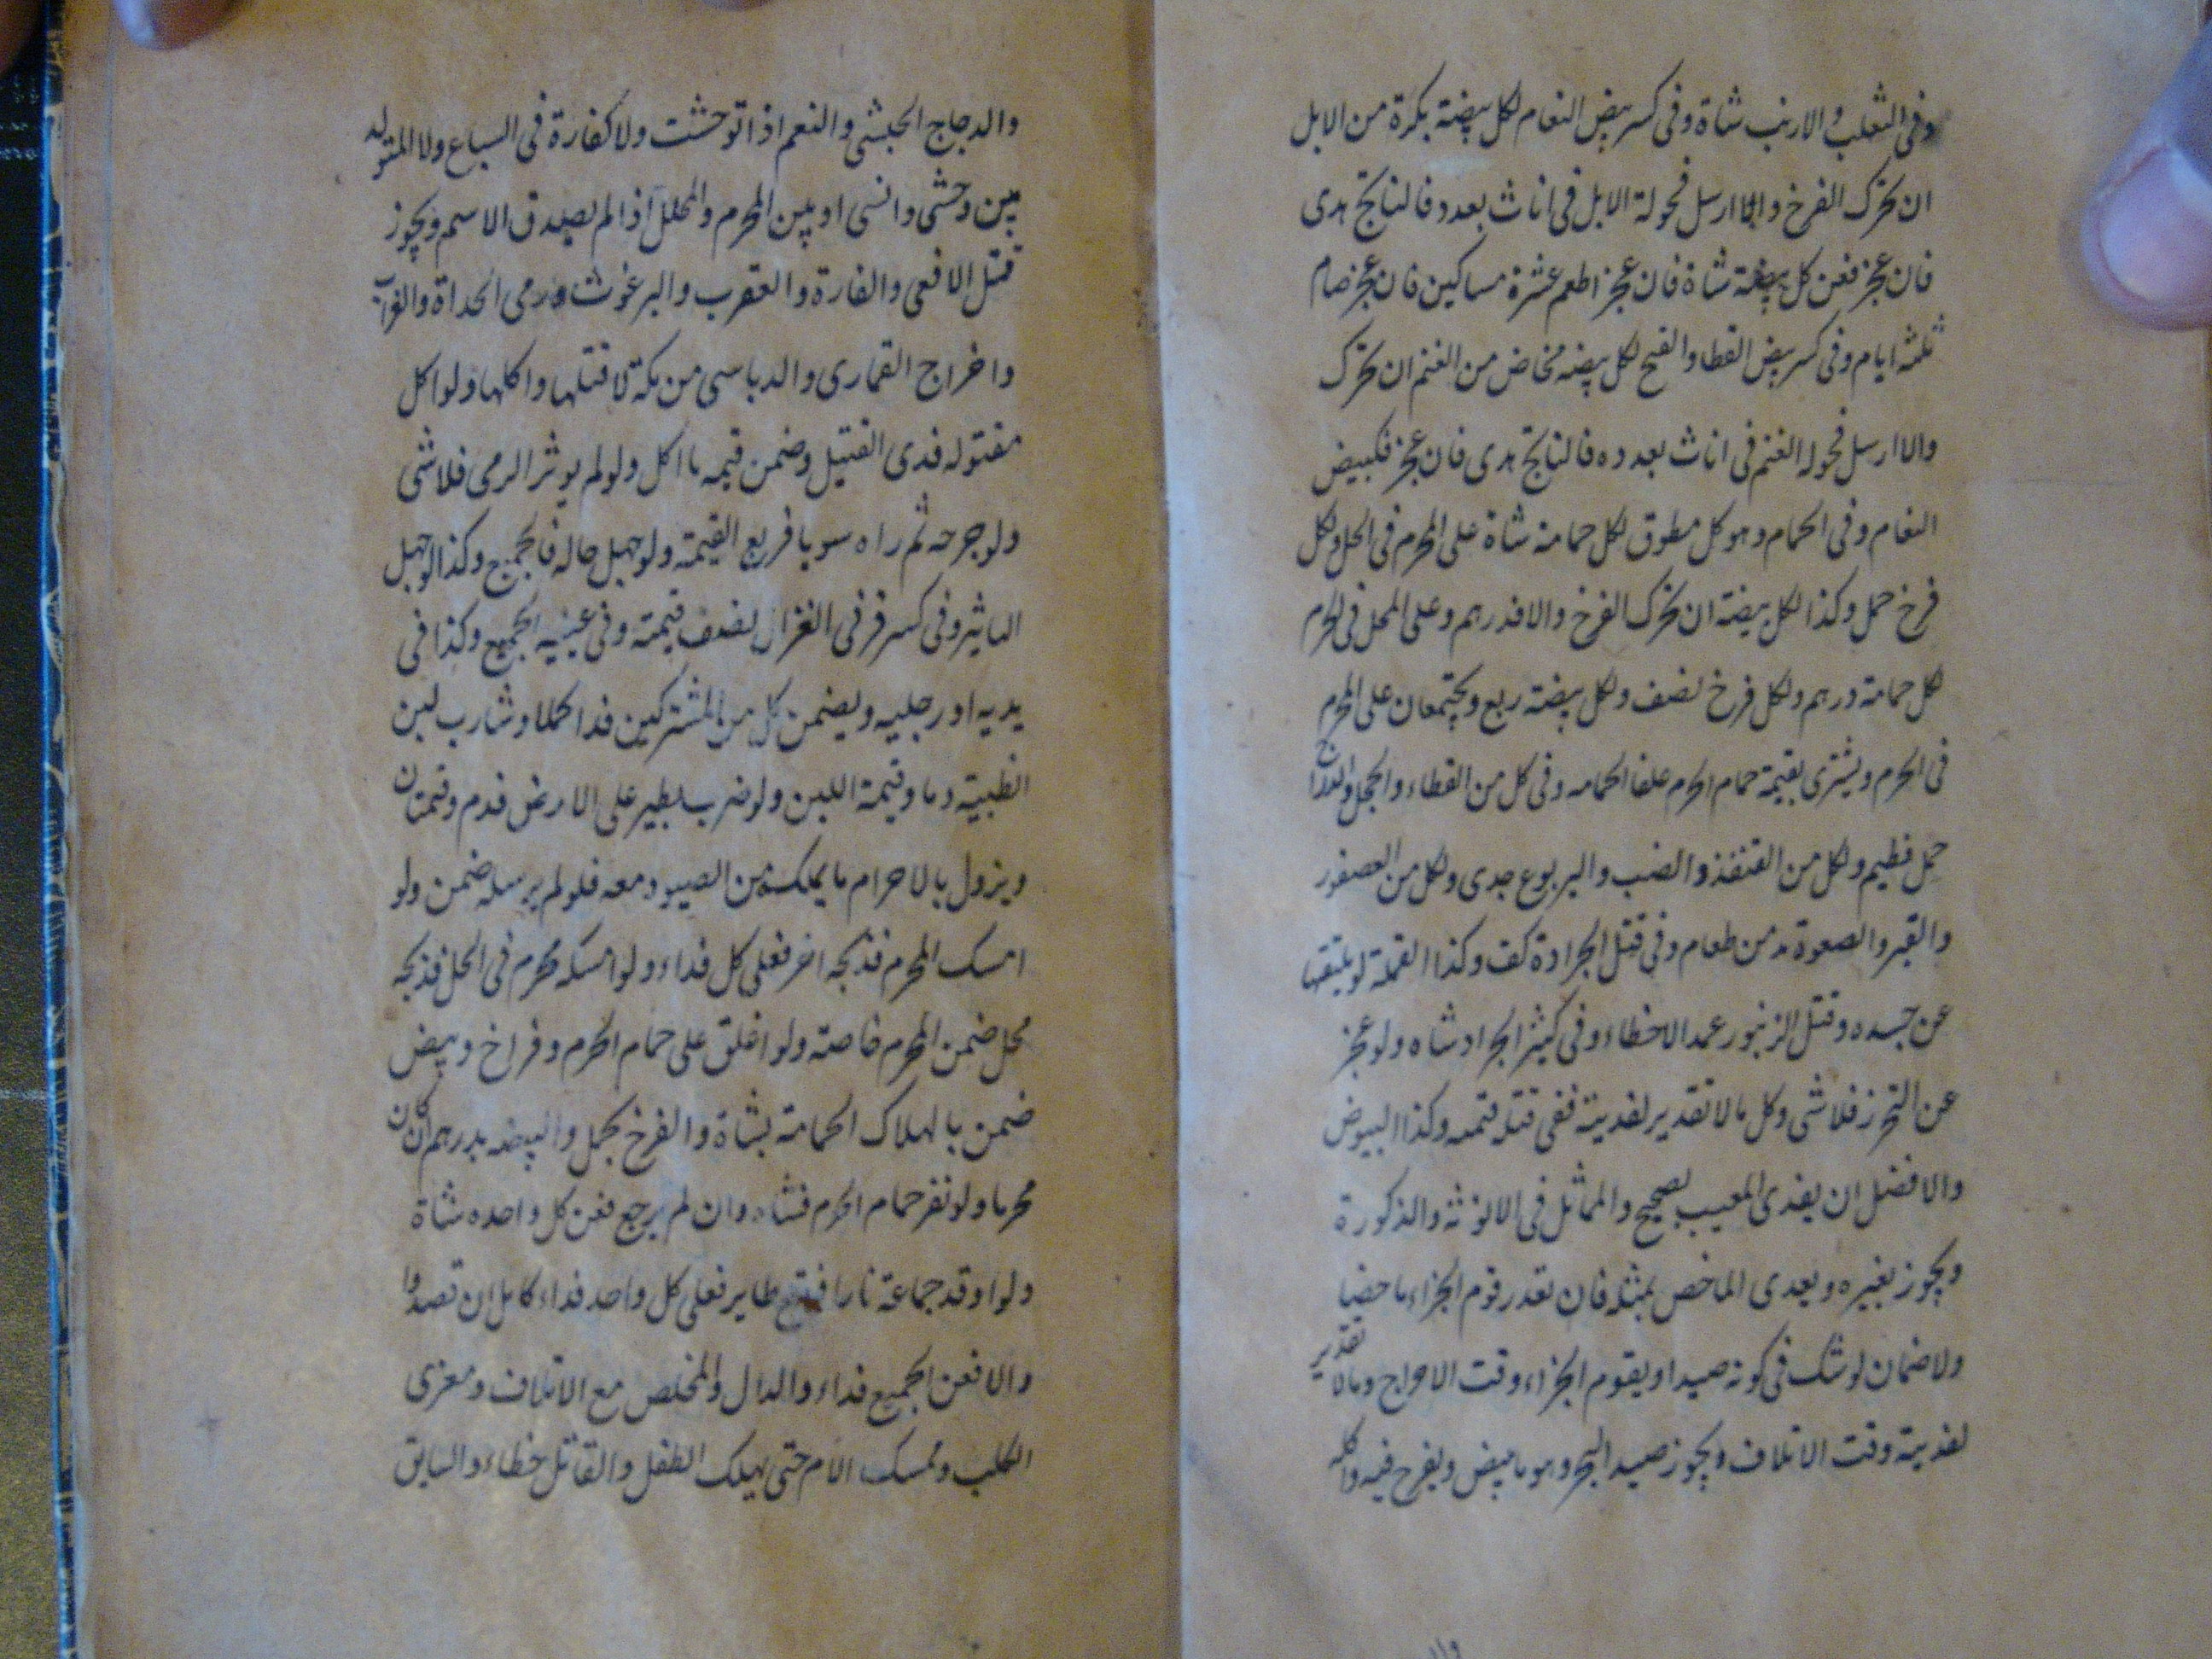 وفى الثعلب والارنب شاة وفى كسر بيض النعام لكل بيضة بكرة من الابل
ان تحرك الفرخ والا ارسل فحولة الابل فى اناث بعدد فالناتج هدى
فان عجز فعن كل بيضة شاة فان عجز اطعم عشرة مساكين فان عجز صام
ثلثة ايام وفى كسر بيض القطا والقبج لكل بيضه مخاض من الغنم ان تحرك
والا ارسل فحوله الغنم فى اناث بعدده فالناتج هدى فان عجز فكبيض
النعام وفى الحمام وهو كل مطوق لكل حمامة شاة على المحرم فى الحل ولكل
فرخ حمل وكذا لكل بيضة ان تحرك الفرخ والا فدرهم وعلى المحل فى الحرم
لكل حمامة درهم ولكل فرخ نصف ولكل بيضة ربع ويجتمعان على المحرم
فى الحرم ويشترى بقيمة حمام الحرم علفا لحمامه وفى كل من القطاء والحجل والدراج
حمل فطيم ولكل من القنفذ والضب واليربوع جدى ولكل من العصفور
والقبر والصعوة مد من طعام وفى قتل الجرادة كف وكذا القملة لو يلقيها
عن جسده وقتل الزنبور عمدا لا خطاء وفى كثير الجراد شاه ولو عجز
عن التحرز فلا شى وكل ما لا تقدير لفديته ففى قتله قيمته وكذا البيوض
والافضل ان يفدى المعيب بصحيح والمماثل فى الانوثة والذكورة
ويجوز بغيره ويفدى الماخض بمثله فان تعذر قوم الجزاء ماخضا
ولا ضمان لو شك فى كونه صيدا ويقوم الجزاء وقت الاخراج وما لا تقدير
لفديته وقت الاتلاف ويجوز صيد البحر وهو ما يبيض ويفرخ فيه واكله
والدجاج الحبشى والنعم اذا توحشت ولا كفارة فى السباع ولا المتولد
بين وحشى وانسى او بين المحرم والمحلل اذا لم يصدق الاسم ويجوز
قتل الافعى والفارة والعقرب والبرغوث ورمى الحداة والغراب
واخراج القمارى والدباسى من مكة لا قتلها واكلها ولو اكل
مقتوله فدى القتيل وضمن قيمه ما اكل ولو لم يوثر الرمى فلا شى
ولو جرحه ثم راه سويا فربع القيمة ولو جهل حاله فالجميع وكذا لو جهل
التاثير وفى كسر قرنى الغزال نصف قيمته وفى عينيه الجميع وكذا فى
يديه او رجليه ويضمن كل من المشتركين فدا كملا وشارب لبن
الظبية دما وقيمة اللبن ولو ضرب بطير على الارض فدم وقيمتان
ويزول بالاحرام ما يملكه من الصيود معه فلو لم يرسله ضمن ولو
امسك المحرم فذبحه اخر فعلى كل فداء ولو امسكه محرم فى الحل فذبحه
محل ضمن المحرم خاصة ولو اغلق على حمام الحرم وفراخ وبيض
ضمن بالهلاك الحمامة بشاة والفرخ بحمل والبيضه بدرهم ان كان
محرما ولو نفر حمام الحرم فشاه وان لم يرجع فعن كل واحده شاة
ولو اوقد جماعة نارا فوقع طاير فعلى كل واحد فداء كامل ان قصدوا
والا فعن الجميع فداء والدال والمخلص مع الاتلاف ومغرى
الكلب وممسك الام حتى يهلك الطفل والقاتل خطاء والسايق